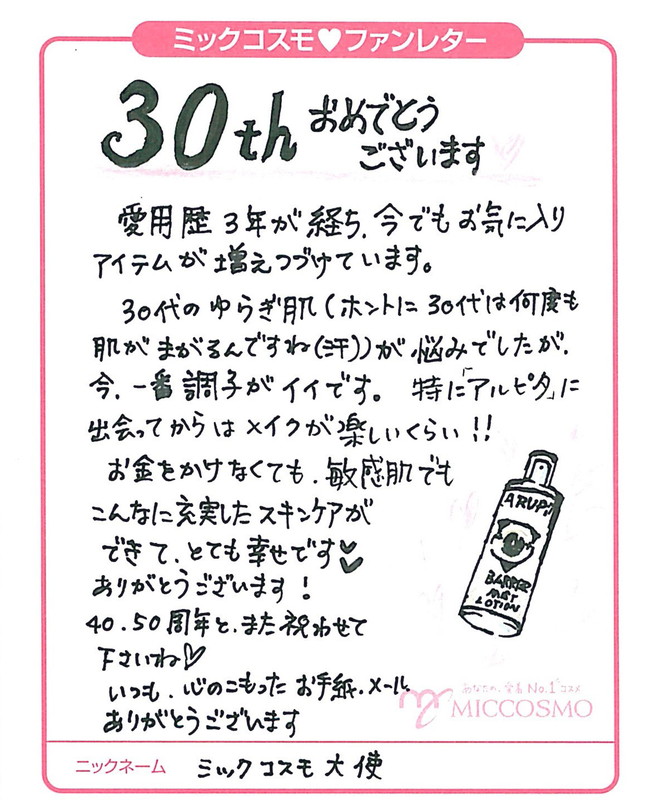 ミックコスモ♥ファンレター
30th おめでとう
ございます
愛用歴3年が経ち、今でもお気に入り
アイテムが増えつづけています。
30代のゆらぎ肌(ホントに30代は何度も
肌がまがるんですね(汗))が悩みでしたが、
今、一番調子がイイです。 特に「アルピタ」に
出会ってからはメイクが楽しいくらい!!
お金をかけなくても、敏感肌でも
こんなに充実したスキンケアが
できて、とても幸せです♥♥
ありがとうございます!
40.50周年と、また祝わせて
下さいね♡
いつも、心のこもったお手紙、メール
ありがとうございます
ARUPI
BARRIER
MIST
LOTION
あなたの、愛着No.1コスメ
MICCOSMO
ニックネーム ミックコスモ大使